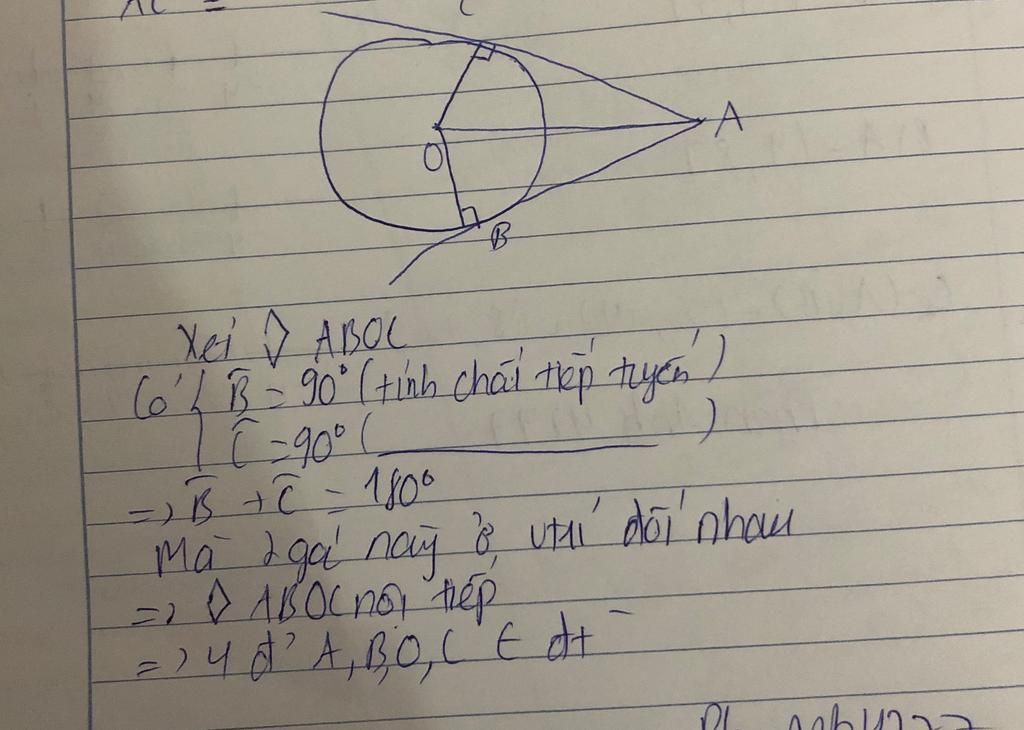 AC =
C
A
O
B
Xét ◊ ABOC
Có { B̂ = 90° (tính chất tiếp tuyến)
Ĉ = 90° ( ________ )
=> B̂ + Ĉ = 180°
Mà 2 góc này ở vị trí đối nhau
=> ◊ ABOC nội tiếp
=> 4 đ' A, B, O, C ∈ đt